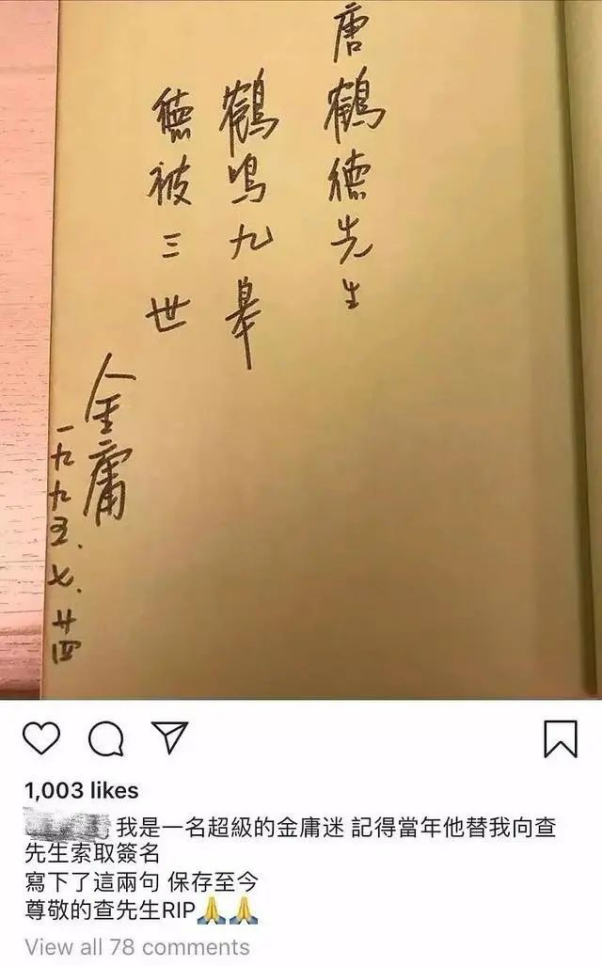 唐鶴德先生
鶴鳴九皋
德被三世
金庸
一九九五.七.廿四
1,003 likes
我是一名超級的金庸迷 記得當年他替我向查
先生索取簽名
寫下了這兩句 保存至今
尊敬的查先生RIP🙏🙏
View all 78 comments